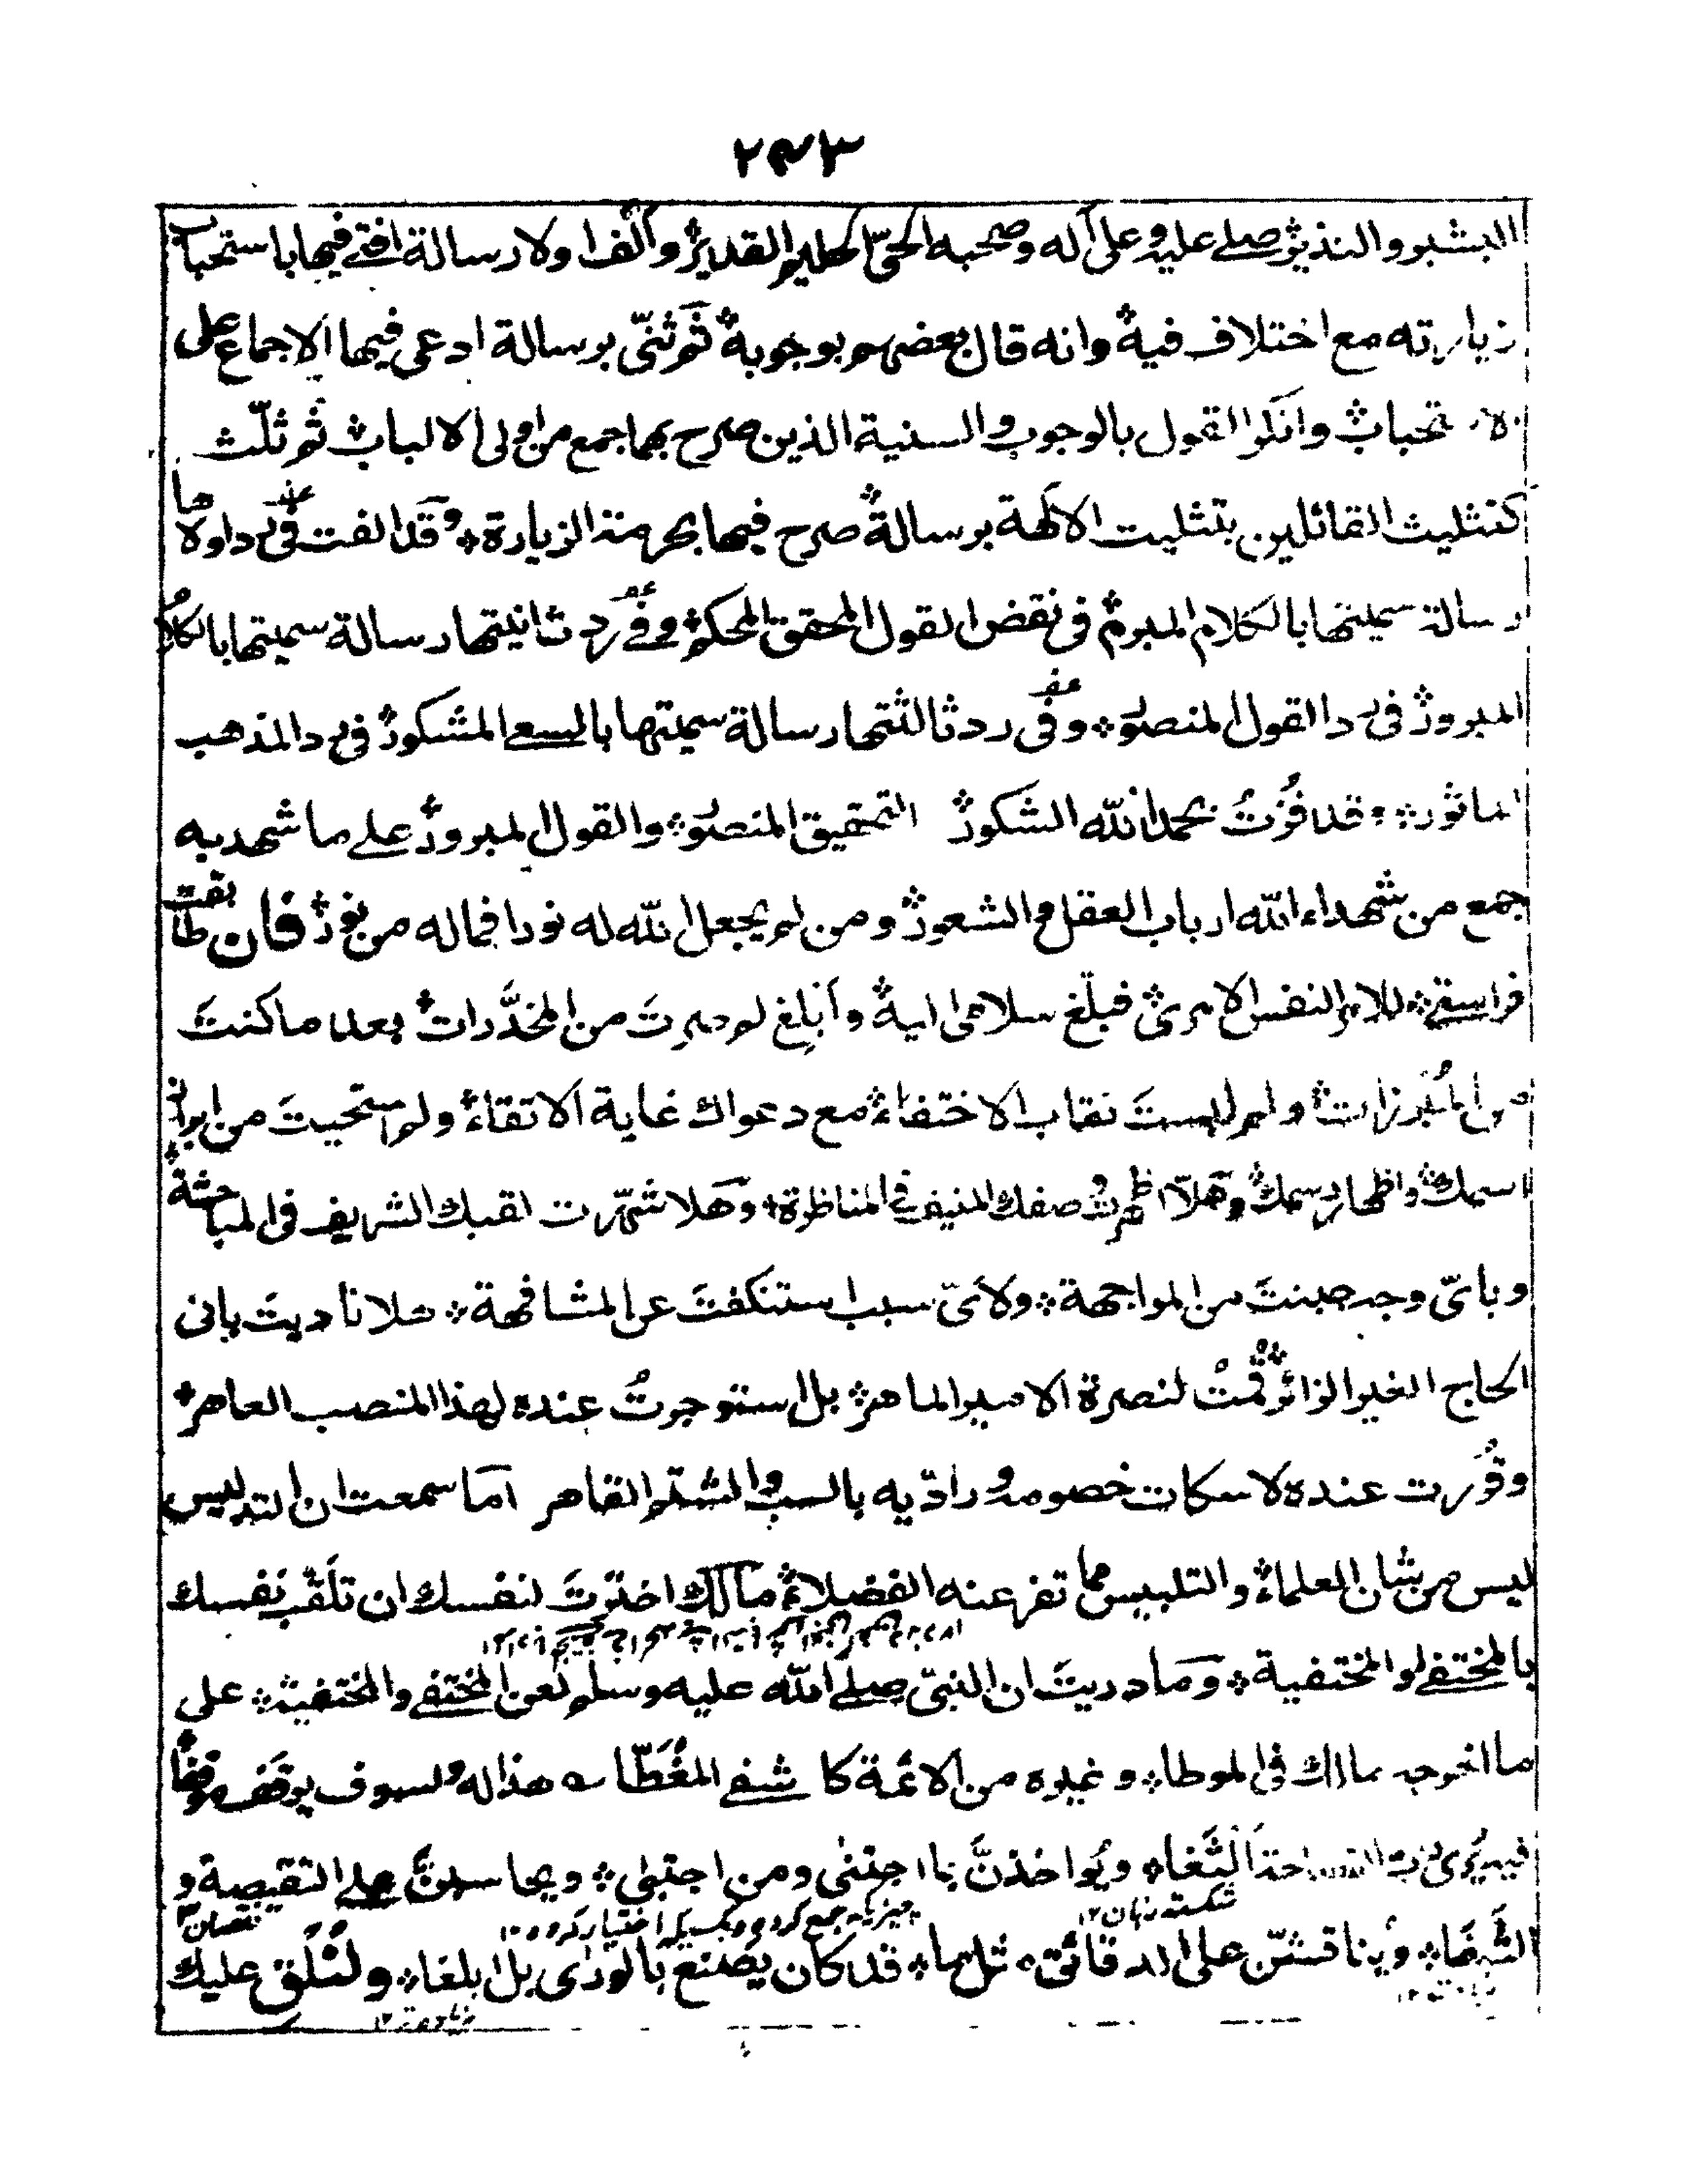 ٢٤٣
البشير والنذير صلے عليه وعلى آله وصحبه الحىّ الحليم القدير وألّف اولا رسالة افتے فيها باستحباب
زيارته مع اختلاف فيه وانه قال بعضهم بوجوبه ثم ثنّى برسالة ادعى فيها الاجماع على
الاستحباب وانكر القول بالوجوب والسنية الذين صرح بهما جمع من اولى الالباب ثم ثلّث
كتثليث القائلين بتثليث الآلهة برسالة صرح فيها بحرمة الزيارة وقد الفت فى رد اولاها
رسالة سميتها بالكلام المبرم فى نقض القول المحقق المحكم وفے رد ثانيتها رسالة سميتها بالكلام
المبرور فى رد القول المنصور وفى رد ثالثتها رسالة سميتها بالسعے المشكور فى رد المذهب
الماثور قد فزت بحمد الله الشكور التحقيق المنصور والقول المبرور علے ما شهد به
جمع من شهداء الله ارباب العقل والشعور ومن لم يجعل الله له نورا فما له من نور فان طابقت
فراستے للامر النفس الامرى فبلّغ سلامى اليه وأبلغ لم صرتَ من المخدَّرات بعد ما كنتَ
من المُبرزات ولم لبستَ نقاب الاختفاء مع دعواك غاية الاتقاء ولم استحييت من ابراز
اسمك واظهار رسمك وهلّا اظهرت وصفك المنيف فى المناظرة وهلا شهّرت لقبك الشريف فى المباحثة
وباىّ وجه جبنتَ من المواجهة ولاىّ سبب استنكفتَ عن المشافهة هلا ناديتَ بانى
الحاج الغير الزائر قمتُ لنصرة الامير الماهر بل استوجرتُ عنده لهذا المنصب العاهر
وقُررت عنده لاسكات خصومه ورادّيه بالسب والشتم القاهر اما سمعت ان التدليس
ليس من شان العلماء والتلبيس مما تفر عنه الفضلاء مالك اخترتَ لنفسك ان تلقّب نفسك
بالمختفے او المختفية وما دريتَ ان النبىّ صلے الله عليه وسلم لعن المختفے والمختفية على
ما اخرجه مالك فى الموطا وغيره من الائمة كاشفے المغُطّا هذا له ولسوف يوقف موقفا
فيه يُرى رب الفصاحة الثغا ويُواخذنّ بما اجتنى ومن اجتبى ويحاسبنّ علے النقيصة و
شكسته زبان ١٢ نقصان ١٢
الشَّغا ويناقشنّ على الدقائق مثل ما قد كان يصنع بالورٰى بل ابلغا ولتُلق عليك